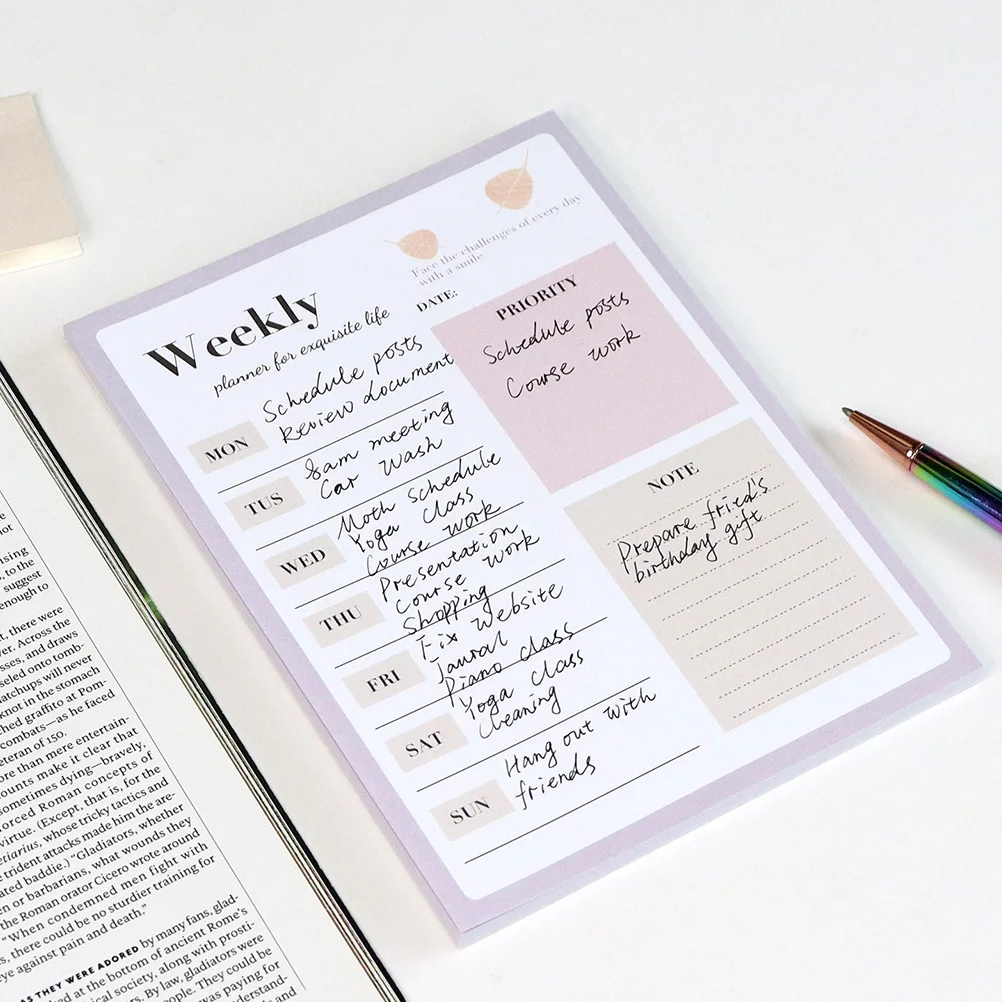 Face the challenges of every day
with a smile.
Weekly
planner for exquisite life
DATE:
MON
Schedule posts
Review document
TUS
8am meeting
Car wash
WED
Moth Schedule
Yoga class
Course work
THU
Presentation
Course work
Shopping
FRI
Fix website
Jaural
Piano class
SAT
Yoga class
Cleaning
SUN
Hang out with
friends
PRIORITY
Schedule posts
Course work
NOTE
Prepare fried's
birthday gift
ot
ising
, to the
suggest
enough to
t, there were
Across the
sses, and draws
seled onto tomb-
atchups will never
knot in the stomach
hed graffito at Pom-
combats—as he faced
eteran of 150.
ore than mere entertain-
ounts make it clear that
sometimes dying—bravely,
orced Roman concepts of
virtue. (Except, that is, for the
etiarius, whose tricky tactics and
trident attacks made him the are-
ated baddie.) "Gladiators, whether
n or barbarians, what wounds they
the Roman orator Cicero wrote around
"When condemned men fight with
, there could be no sturdier training for
eye against pain and death."
AS THEY WERE ADORED by many fans, glad-
ed at the bottom of ancient Rome's
cial society, along with prosti-
rs. By law, gladiators were
eople. They could be
was paying for